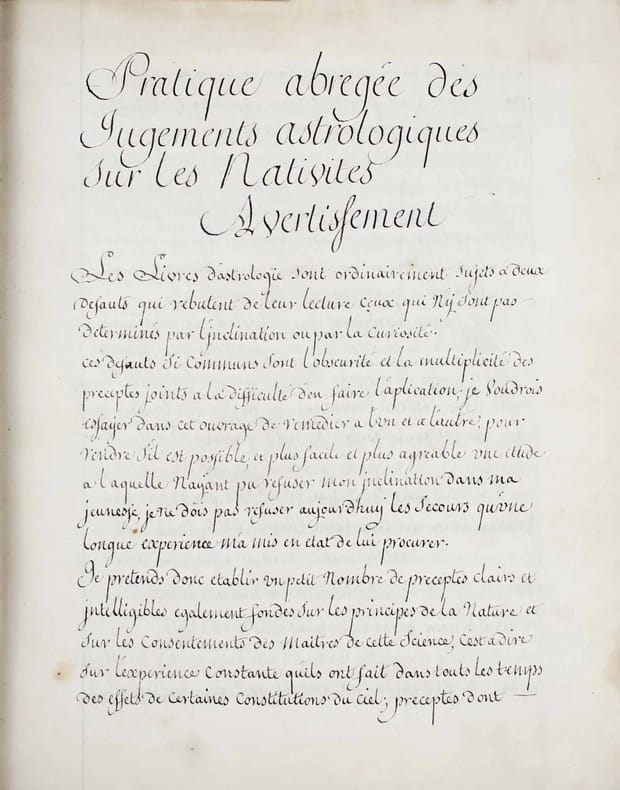 Pratique abregée des
Jugements astrologiques
sur les Nativites
Avertissement
Les Livres d'astrologie sont ordinairement sujets a deux
defauts qui rebutent de leur lecture Ceux qui N'ÿ sont pas —
determinés par l'jnclination ou par la Curiosité.
ces defauts si Communs sont l'obscurité et la multiplicité des
preceptes joints a la difficulté d'en faire l'aplication, je Voudrois
essayer dans cet ouvrage de remedier a l'vn et a l'autre, pour
rendre s'il est possible, et plus facile et plus agreable vne etude
a laquelle N'ayant pu refuser mon jnclination dans ma
jeunesse, je ne dois pas refuser aujourdhuy les Secours qu'vne
longue experience m'a mis en etat de lui procurer.
Je pretends donc etablir vn petit Nombre de preceptes clairs et
jntelligibles egalement fondes sur les principes de la Nature et
sur les Consentements des Maitres de cette Science, C'est a dire
sur l'experience Constante qu'ils ont fait dans touts les temps
des effets de Certaines Constitutions du Ciel; preceptes dont —